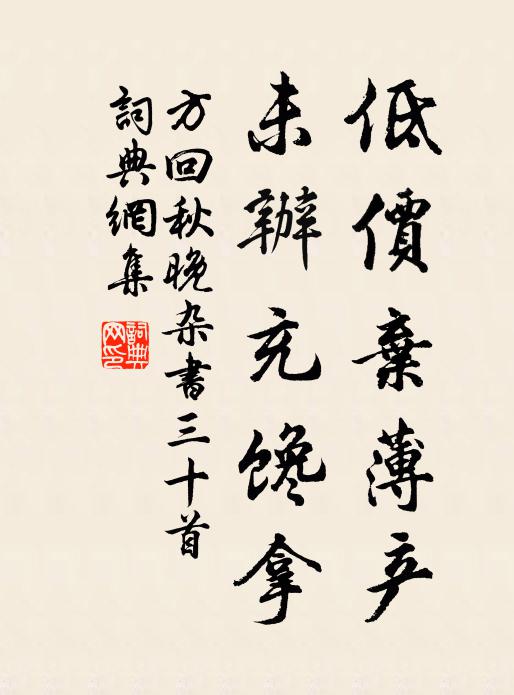 低價棄薄产
未辦充馋拿
方回秋晚杂書三十首
詞典網集
詞典網印